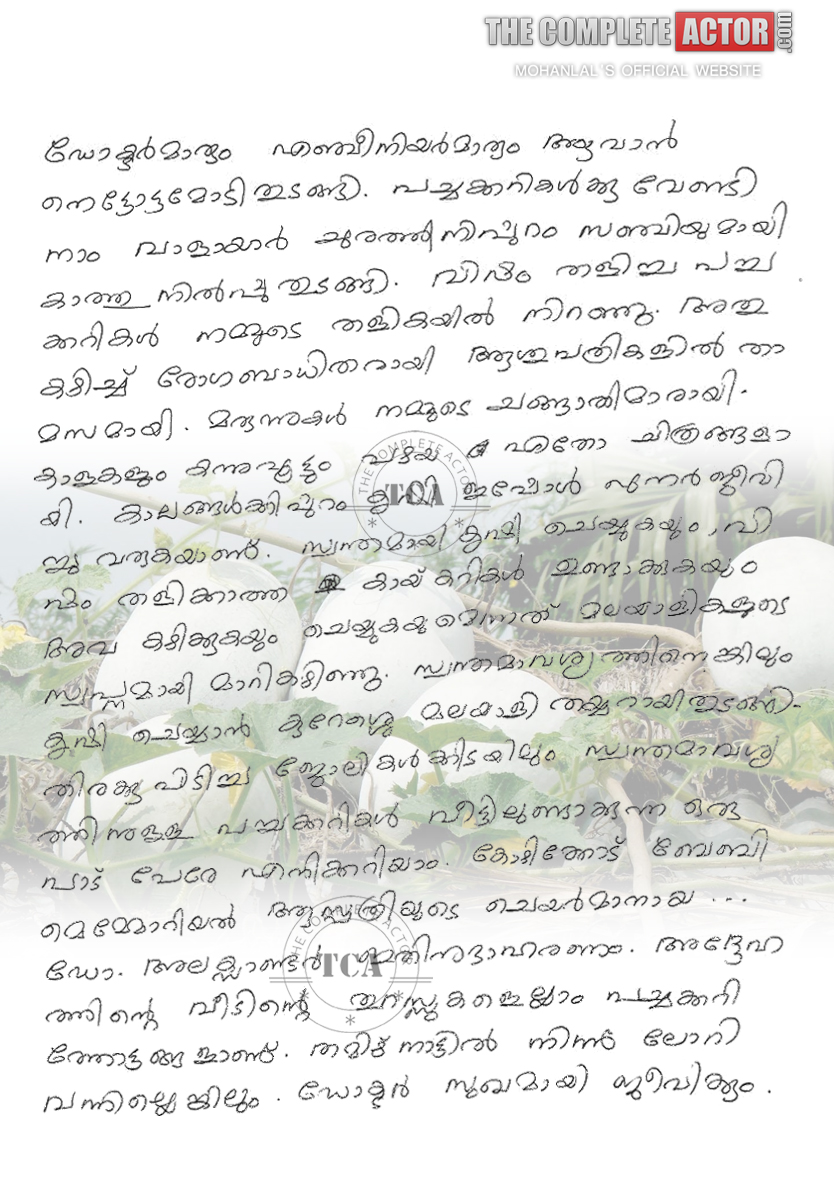 THE COMPLETE ACTOR .com
MOHANLAL'S OFFICIAL WEBSITE
ഡോക്ടർമാരും എഞ്ചിനിയർമാരും ആവുവാൻ
നെട്ടോട്ടമോടിതുടങ്ങി. പച്ചക്കറികൾക്കു വേണ്ടി
നാം വാളായാർ ചുരത്തിനിപ്പുറം സഞ്ചിയുമായി
കാത്തു നിൽപ്പുതുടങ്ങി. വിഷം തളിച്ച പച്ച
ക്കറികൾ നമ്മുടെ തളികയിൽ നിറഞ്ഞു. അതു
കഴിച്ച് രോഗബാധിതരായി ആശുപത്രികളിൽ താ
മസമായി. മരുന്നുകൾ നമ്മുടെ ചങ്ങാതിമാരായി.
കാളകളും കന്നുപൂട്ടും ഏതോ ചിത്രങ്ങളാ
യി. കാലങ്ങൾക്കിപ്പുറം കൃഷി ഇപ്പോൾ പുനർജ്ജീവി
ച്ചു വരുകയാണ്. സ്വന്തമായി കൃഷി ചെയ്യുകയും, വി
ഷം തളിക്കാത്ത കായ്കറികൾ ഉണ്ടാക്കുകയും
അവ കഴിക്കുകയും ചെയ്യുകയുമെന്നത് മലയാളികളുടെ
സ്വപ്നമായി മാറികഴിഞ്ഞു. സ്വന്തമാവശ്യത്തിനെങ്കിലും
കൃഷി ചെയ്യാൻ കുറേശ്ശെ മലയാളി തയ്യാറായിതുടങ്ങി.
തിരക്കു പിടിച്ച ജോലികൾക്കിടയിലും സ്വന്തമാവശ്യ
ത്തിനുള്ള പച്ചക്കറികൾ വീട്ടിലുണ്ടാക്കുന്ന ഒരു
പാട് പേരേ എനിക്കറിയാം. കോഴിക്കോട് ബേബി
മെമ്മോറിയൽ ആസ്പത്രിയുടെ ചെയർമാനായ ...
ഡോ. അലക്സാണ്ടർ ഇതിനുദാഹരണം. അദ്ദേഹ
ത്തിന്റെ വീടിന്റെ ടെറസ്സുകളെല്ലാം പച്ചക്കറി
ത്തോട്ടങ്ങളാണ്. തമിഴ് നാട്ടിൽ നിന്ന് ലോറി
വന്നില്ലെങ്കിലും. ഡോക്ടർ സുഖമായി ജീവിക്കും.
THE COMPLETE ACTOR
TCA
THE COMPLETE ACTOR
TCA